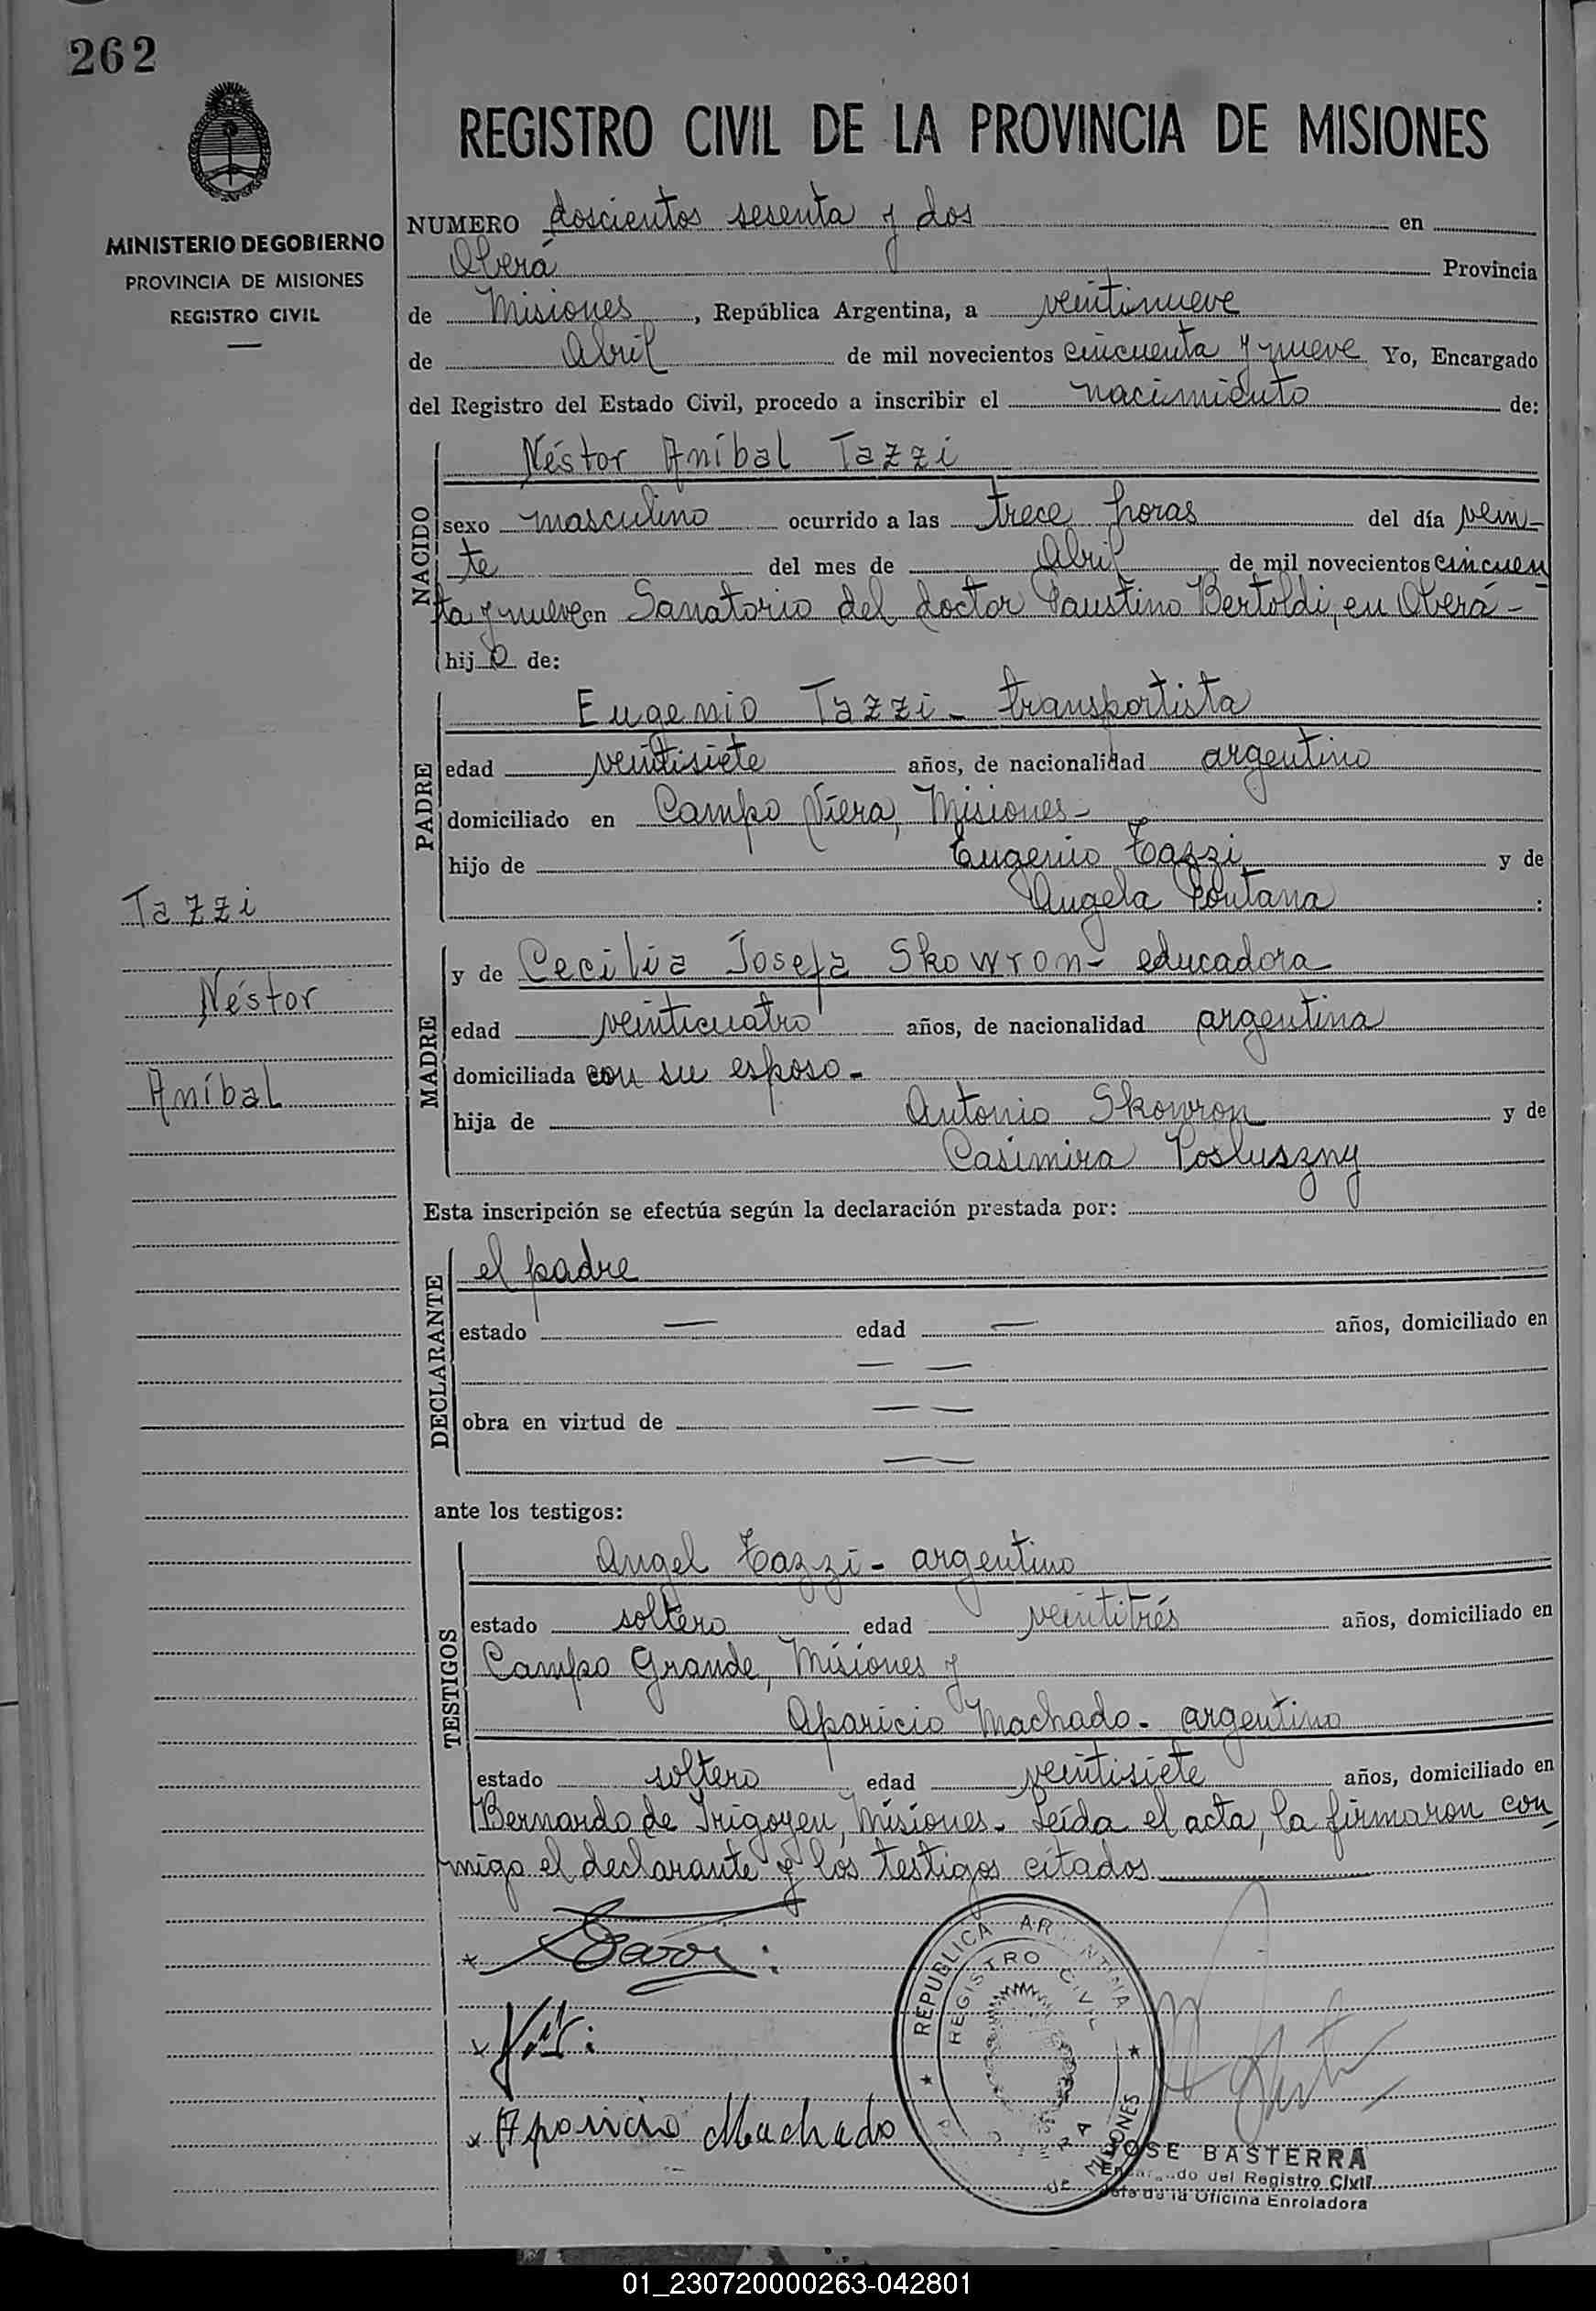 262
REGISTRO CIVIL DE LA PROVINCIA DE MISIONES
MINISTERIO DE GOBIERNO
PROVINCIA DE MISIONES
REGISTRO CIVIL
NUMERO doscientos sesenta y dos en
Oberá Provincia
de Misiones, República Argentina, a veintinueve
de Abril de mil novecientos cincuenta y nueve Yo, Encargado
del Registro del Estado Civil, procedo a inscribir el nacimiento de:
NACIDO
Néstor Aníbal Tazzi
sexo masculino ocurrido a las trece horas del día vein-
te del mes de Abril de mil novecientos cincuen
ta y nueve en Sanatorio del doctor Faustino Bertoldi, en Oberá-
hijo de:
PADRE
Eugenio Tazzi - transportista
edad veintisiete años, de nacionalidad argentino
domiciliado en Campo Viera, Misiones-
hijo de Eugenio Tazzi y de
Angela Fontana :
MADRE
y de Cecilia Josefa Skowron - educadora
edad veinticuatro años, de nacionalidad argentina
domiciliada con su esposo -
hija de Antonio Skowron y de
Casimira Posluszny
Tazzi
Néstor
Aníbal
Esta inscripción se efectúa según la declaración prestada por:
DECLARANTE
el padre
estado — edad — años, domiciliado en
— —
obra en virtud de — —
— —
ante los testigos:
TESTIGOS
Angel Tazzi - argentino
estado soltero edad veintitrés años, domiciliado en
Campo Grande, Misiones y
Aparicio Machado - argentino
estado soltero edad veintisiete años, domiciliado en
Bernardo de Irigoyen, Misiones. Leída el acta, la firmaron con
migo el declarante y los testigos citados
Aparicio Machado
REPUBLICA ARGENTINA
REGISTRO CIVIL
MISIONES
JOSE BASTERRA
Encargado del Registro Civil
Jefe de la Oficina Enroladora
01_230720000263-042801